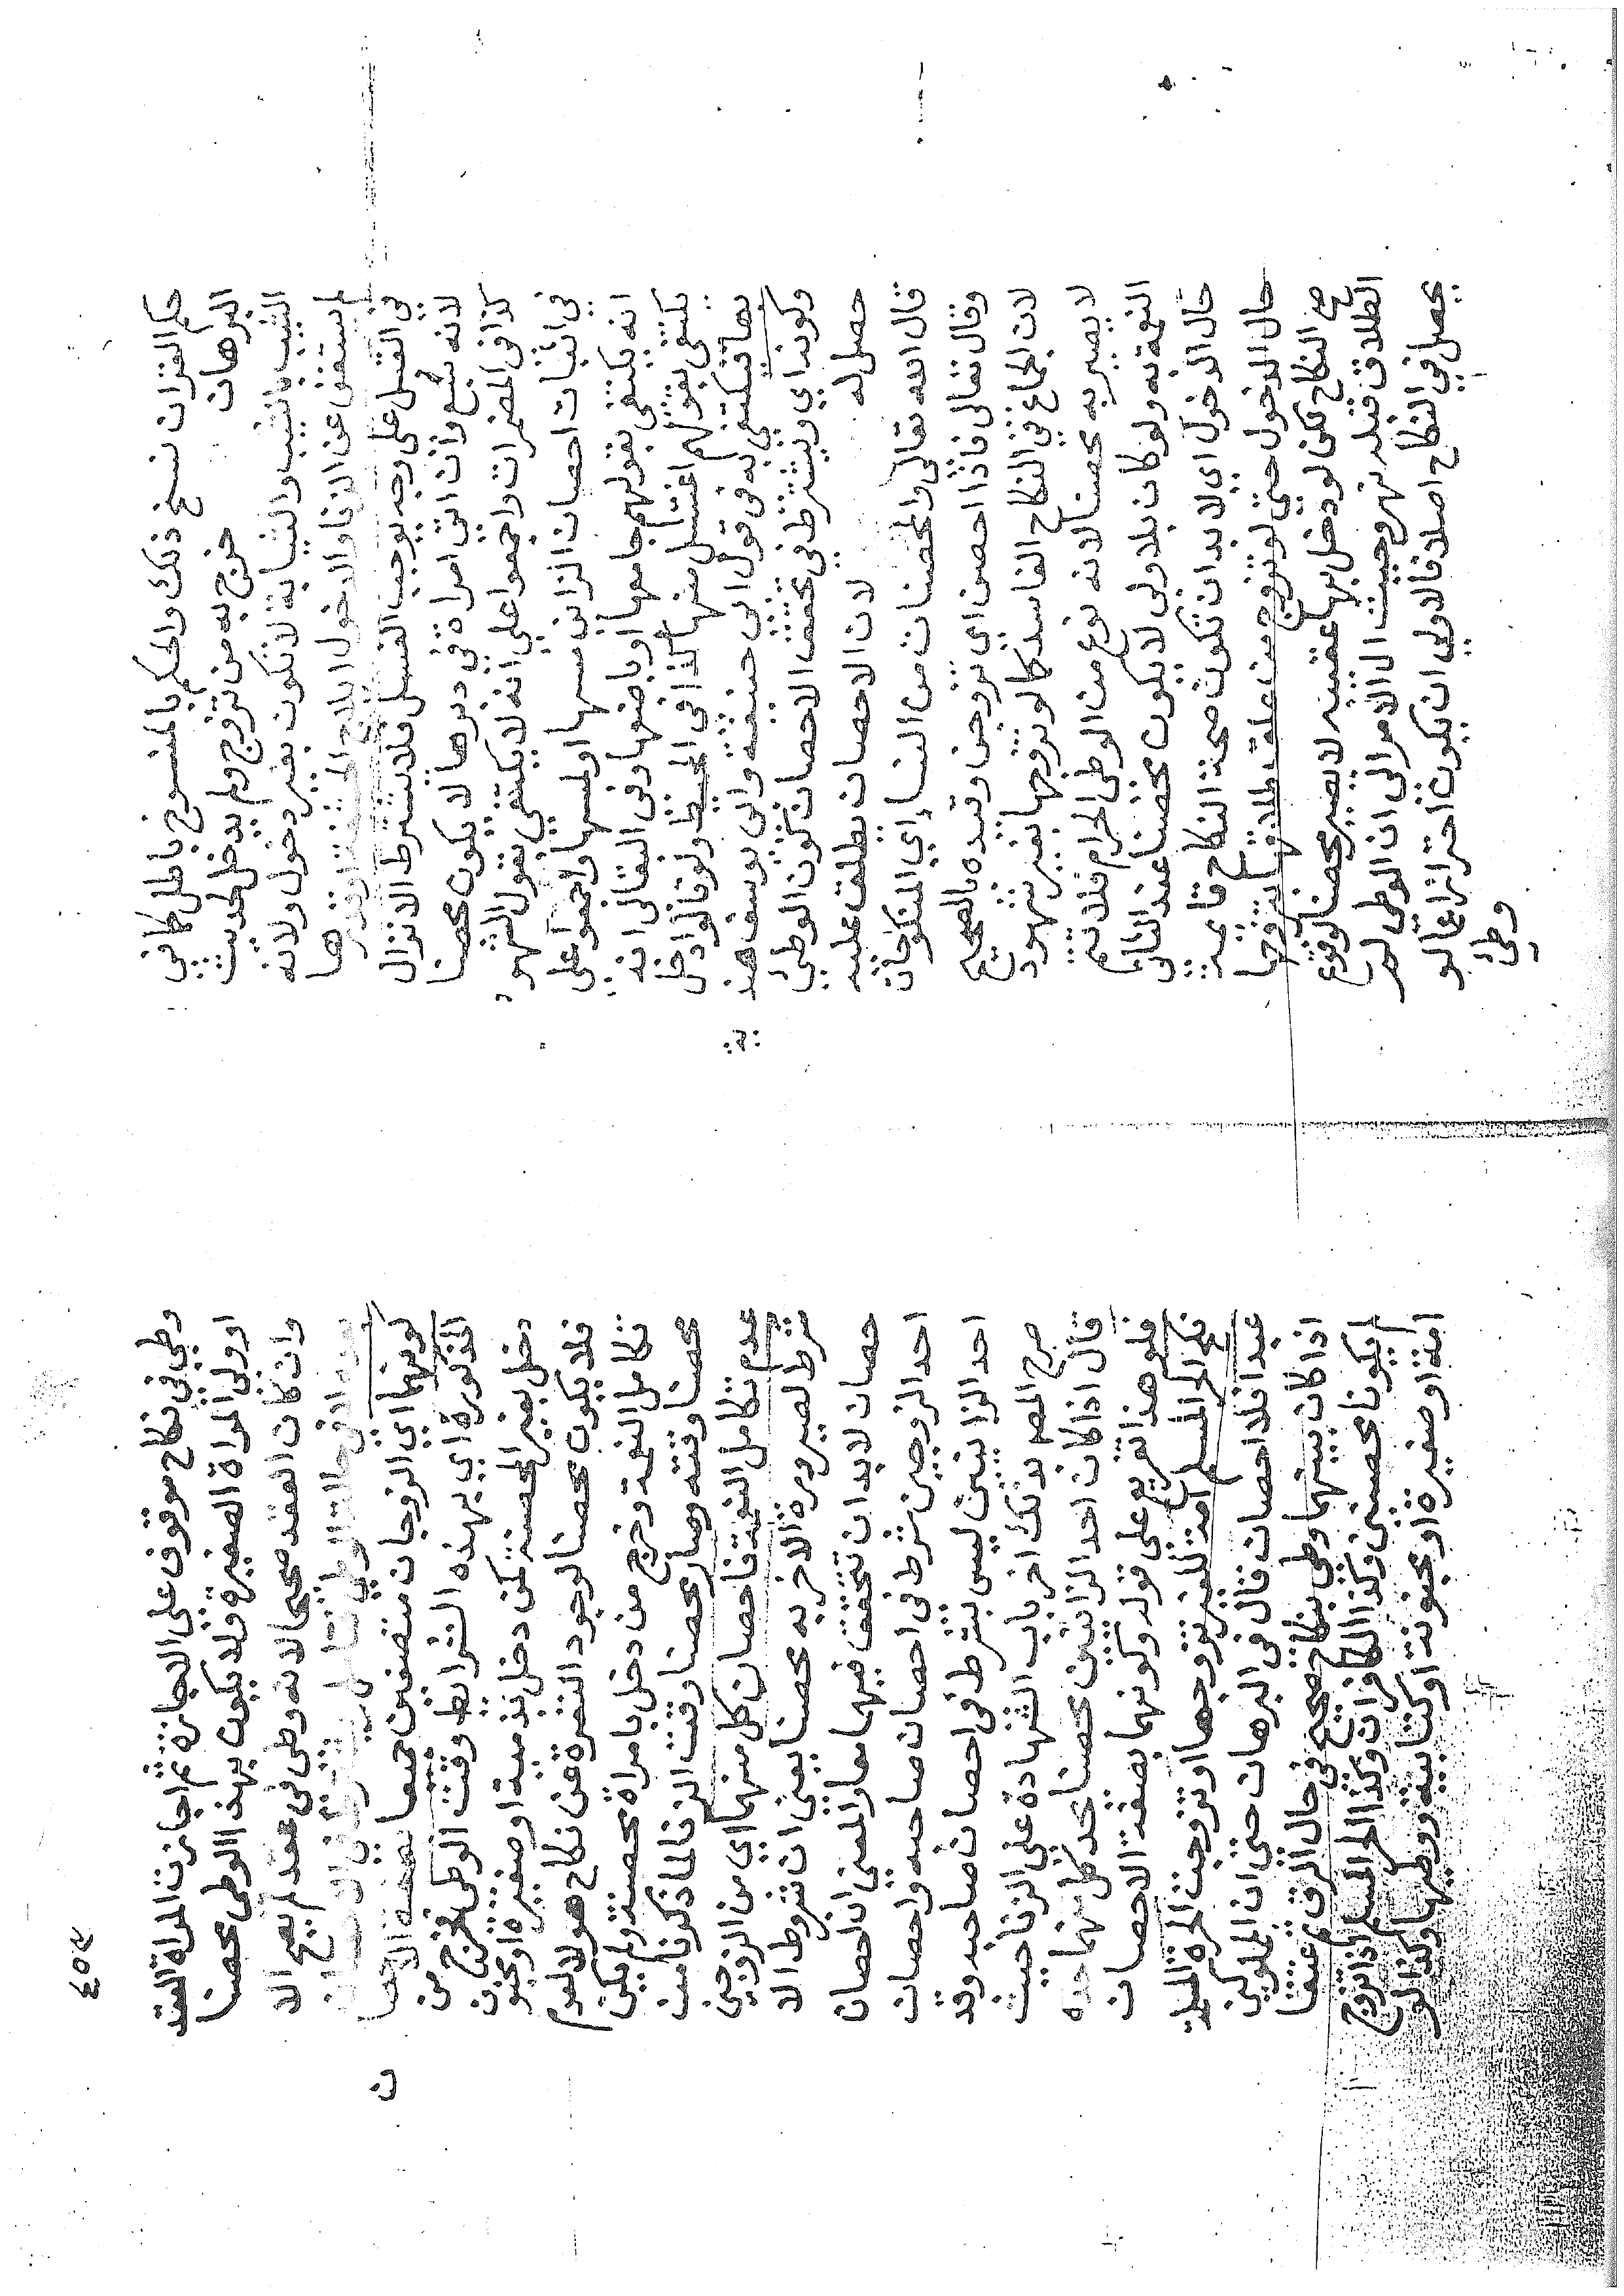 حكم القران نسخ ذلك والحكم بالمنسوخ باطل كما في
البرهان خرج به من تزوج ولم يدخل لحديث
الثيب بالثيب والثيابة لا تكون بغير دخول ولانه
لم يستغن عن الزنا والدخول ايلاج الحشفة او قدرها
في القبل على وجه يوجب الغسل فلا يشترط الانزال
لانه شبع وان اتى امراة في دبرها لا يكون محصنا
كذا في المضمرات واجمعوا على انه لا يكتفي بقول الشهود
في اثبات احصان الزاني مسها او لمسها واجمعوا على
انه يكتفى بقولهم جامعها او باضعها وفي البقالي انه
يكتفى بقولهم اغتسل منها كذا في المحيط ولو قالوا دخل
بها يكتفى به في قول ابي حنيفة وابي يوسف
وكونه اي ويشترط في تحقق الاحصان كون الوطئ
حصل له لان الاحصان يطلق عليه
قال الله تعالى والمحصنات من النساء اي المنكوحات
وقال تعالى فاذا احصن اي تزوجن وقيده بالصحيح
لان الجماع في النكاح الفاسد كما لو تزوجها بغير شهود
لا يصير به محصنا لانه نوع من الوطئ الحرام فلا تتم
النعمة به ولو كان بلا ولي لا يكون محصنا عند الثاني
حال الدخول اي لا بد ان تكون صحة النكاح قائمة
حال الدخول حتى لو تزوج من علق طلاقها بتزوجها
صح النكاح لكن لو دخل بها عقيبه لا يصير محصنا لوقوع
الطلاق قبله نهر وحيث ال الامر الى ان الوطئ لم
يحصل في النكاح اصلا فالاولى ان يكون احترازا عما لو
وطئ
٤٥٤
وطي في نكاح موقوف على الاجازة ثم اجازت المراة العقد
او ولي المراة الصغيرة فلا يكون بهذا الوطئ محصنا
وان كان العقد صحيحا لانه وطئ في عقد لم يصح الا
لو منهما اي الزوجان متصفين جميعا بصفة الاحصا
ن
المذكورة اي بهذه الشرائط وقت الوطئ فخرج من
دخل بغير المحصنة كمن دخل بذمية او صغيرة او مجنونة
فلا يكون محصنا لوجود النفرة عن نكاح هولاء لعدم
تكامل النعمة وخرج من دخل بامراة محصنة ولم يكن
محصنا وقته وصار محصنا وقت الزنا لما ذكرنا من
عدم تكامل النعمة فاحصان كل منهما اي من الزوجين
شرط لصيرورة الاخر به محصنا يعني ان شروط الا
حصان لا بد ان تتحقق فيهما معا والمعنى ان احصان
احد الزوجين شرط في احصان صاحبه واحصان
احد الزانيين ليس بشرط في احصان صاحبه وقد
صرح المص بذلك اخر باب الشهادة على الزنا حيث
قال اذا كان احد الزانيين محصنا يحد كل منهما حده
فلو هذا تفريع على قوله وكونهما بصفة الاحصان
نكح الحر المسلم امة للغير تزوجها او تزوجت الحرة المسلمة
عبدا فلا احصان قال في البرهان حتى ان المملوكين
اذا كان بينهما وطئ بنكاح صحيح في حال الرق ثم عتقا
لم يكونا محصنين وكذا الكافران وكذا الحر المسلم اذا تزوج
امة او صغيرة او مجنونة او كتابية ووطئها وكذا لو